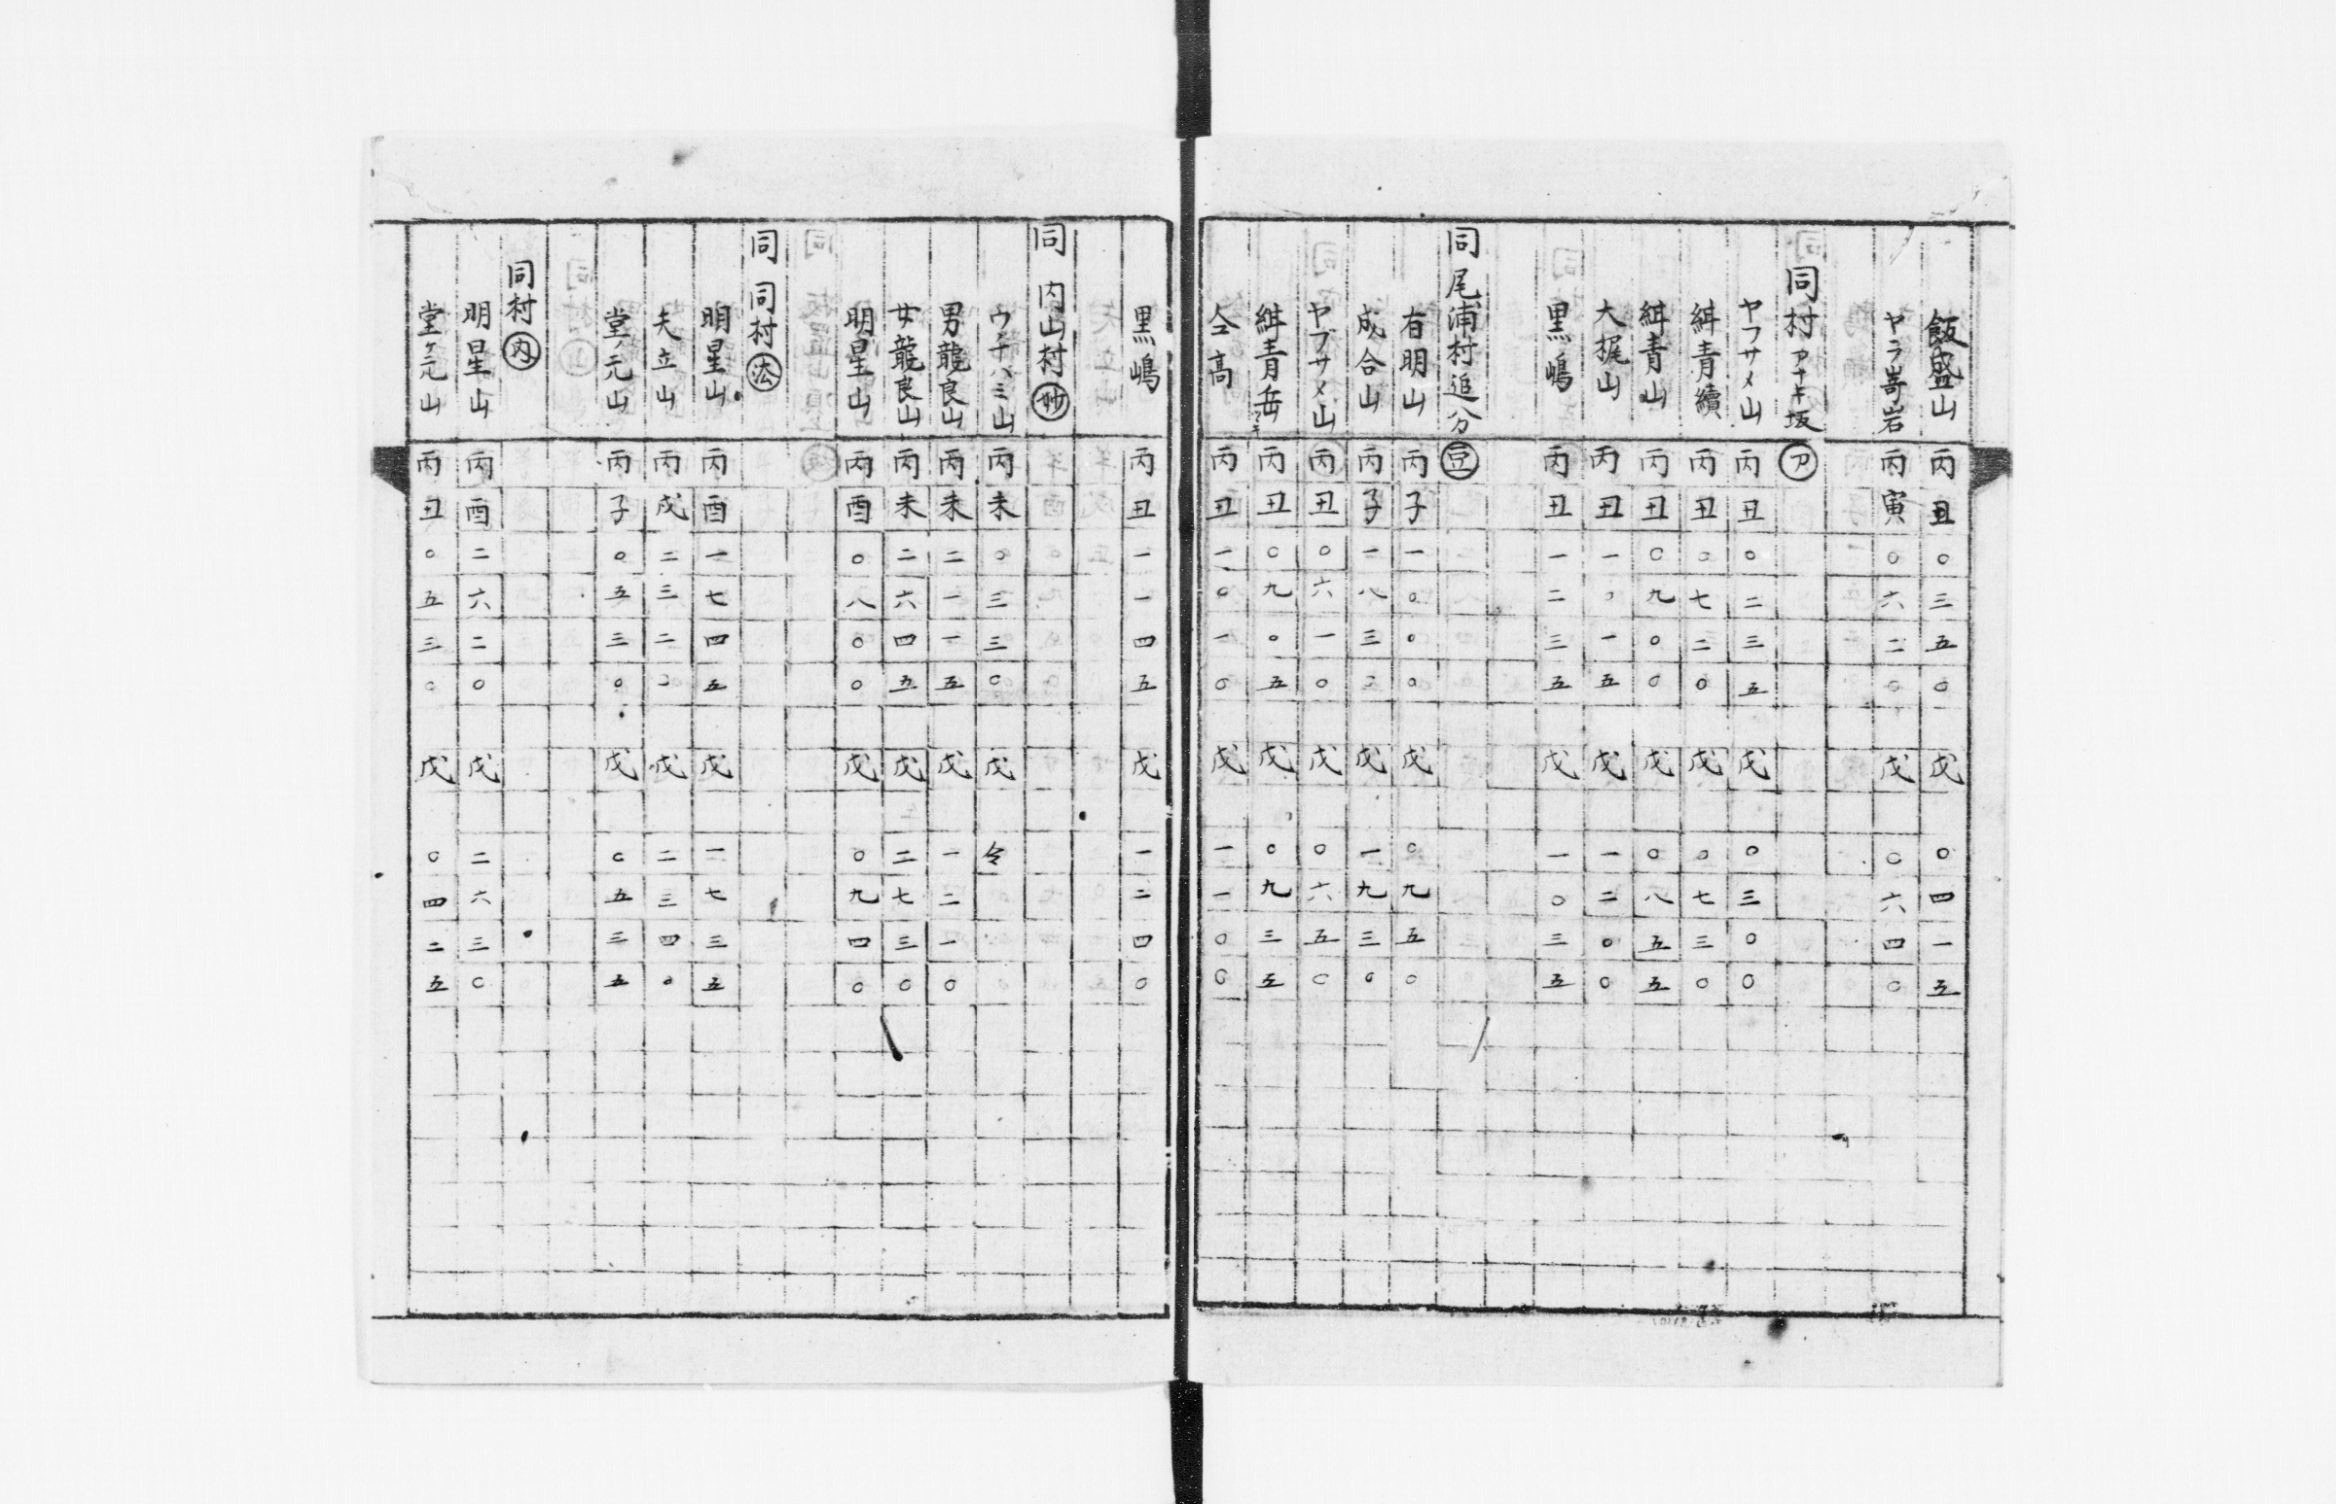 飯盛山 丙丑〇三五〇 戊〇四一五
ヤラ嵜岩 丙寅〇六二〇 戊〇六四〇
同村アナキ坂 ㋐
ヤフサメ山 丙丑〇二三五 戊〇三〇〇
絓青續 丙丑〇七二〇 戊〇七三〇
絓青山 丙丑〇九〇〇 戊〇八五五
大梶山 丙丑一〇一五 戊一二〇〇
黒嶋 丙丑一二三五 戊一〇三五
同 尾浦村追分 豆
有明山 丙子一〇〇〇 戊〇九五〇
成合山 丙子一八三〇 戊一九三〇
ヤブサメ山 丙丑〇六一〇 戊〇六五〇
絓青岳 丙丑〇九〇五 戊〇九三五
仝高 丙丑一〇一〇 戊一一〇〇
黒嶋 丙丑一一四五 戊一二四〇
同 内山村 妙
ウナハミ山 丙未〇三三〇 戊仝
男龍良山 丙未二一一五 戊一二一〇
女龍良山 丙未二六四五 戊二七三〇
明星山 丙酉〇八〇〇 戊〇九四〇
同 同村 法
明星山 丙酉一七四五 戊一七三五
夫立山 丙戌二三二〇 戊二三四〇
堂ノ元山 丙子〇五三〇 戊〇五三五
同村 内
明星山 丙酉二六二〇 戊二六三〇
堂ケ元山 丙丑〇五三〇 戊〇四二五